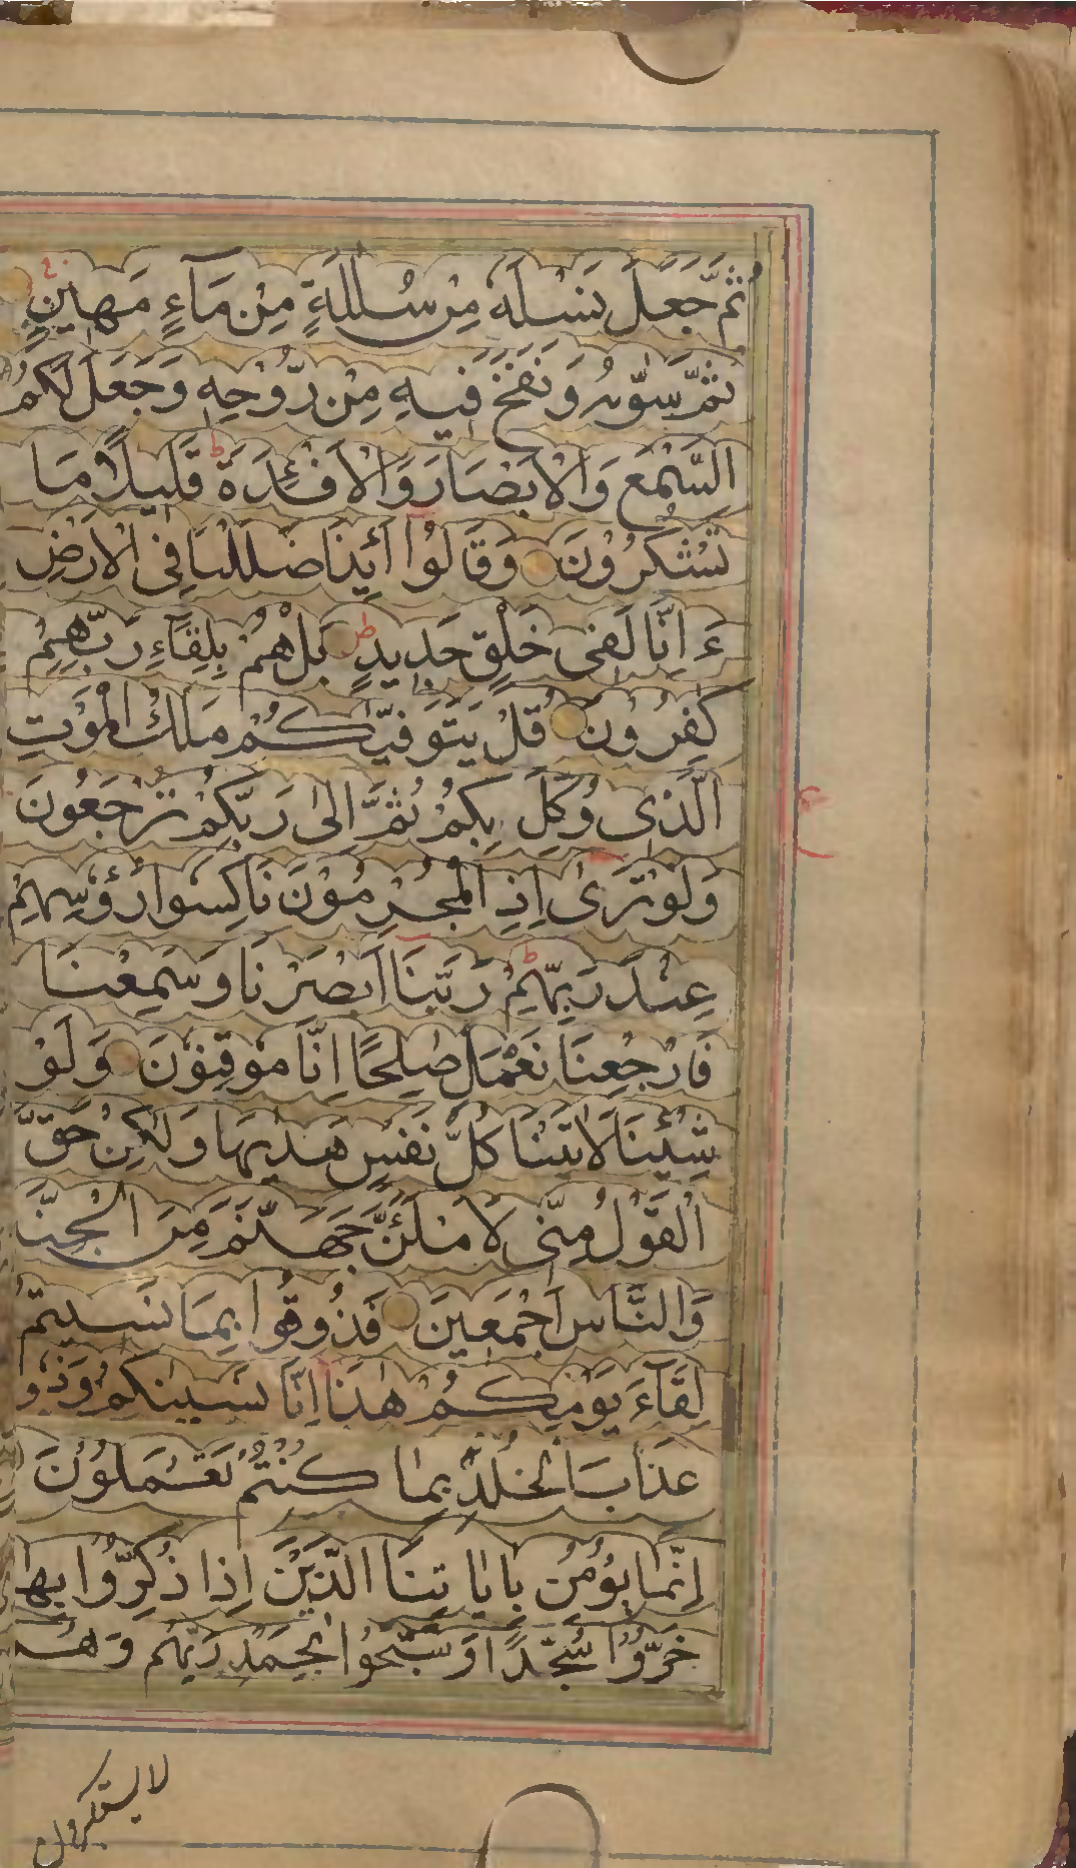 ثُمَّ جَعَلَ نَسْلَهٗ مِنْ سُلٰلَةٍ مِنْ مَآءٍ مَهِيْنٍ
ثُمَّ سَوّٰىهُ وَنَفَخَ فِيهِ مِنْ رُّوْحِهٖ وَجَعَلَ لَكُمُ
السَّمْعَ وَالْاَبْصَارَ وَالْاَفْئِدَةَ ط قَلِيلًا مَا
تَشْكُرُوْنَ وَقَالُوْا اَئِذَا ضَلَلْنَا فِى الْاَرْضِ
ءَاِنَّا لَفِى خَلْقٍ جَدِيدٍ ط بَلْ هُمْ بِلِقَآءِ رَبِّهِمْ
كٰفِرُوْنَ قُلْ يَتَوَفّٰيكُمْ مَلَكُ الْمَوْتِ
الَّذِى وُكِّلَ بِكُمْ ثُمَّ اِلٰى رَبِّكُمْ تُرْجَعُونَ
ع
وَلَوْ تَرٰى اِذِ الْمُجْرِمُوْنَ نَاكِسُوا رُؤُسِهِمْ
عِنْدَ رَبِّهِمْ ط رَبَّنَا اَبْصَرْنَا وَسَمِعْنَا
فَارْجِعْنَا نَعْمَلْ صٰلِحًا اِنَّا مُوْقِنُوْنَ وَلَوْ
شِئْنَا لَاٰتَيْنَا كُلَّ نَفْسٍ هُدٰيهَا وَلٰكِنْ حَقَّ
الْقَوْلُ مِنِّى لَاَمْلَئَنَّ جَهَنَّمَ مِنَ الْجِنَّةِ
وَالنَّاسِ اَجْمَعِينَ فَذُوقُوا بِمَا نَسِيتُمْ
لِقَآءَ يَوْمِكُمْ هٰذَا اِنَّا نَسِينٰكُمْ وَذُو
عَذَابَ الْخُلْدِ بِمَا كُنْتُمْ تَعْمَلُوْنَ
اِنَّمَا يُؤْمِنُ بِاٰيَاتِنَا الَّذِيْنَ اِذَا ذُكِّرُوا بِهَا
خَرُّوْا سُجَّدًا وَسَبَّحُوا بِحَمْدِ رَبِّهِمْ وَهُمْ
لا يستكبرون